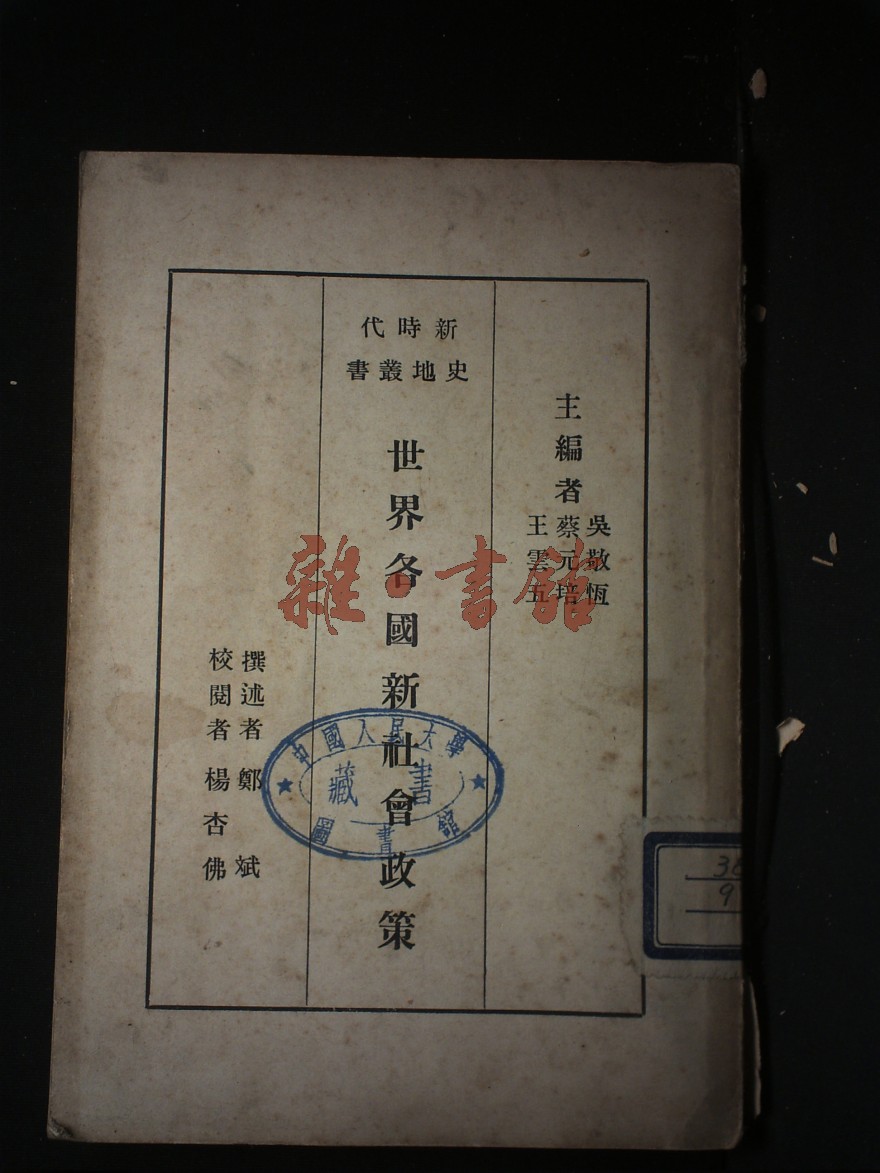 主編者
吳敬恆
蔡元培
王雲五
新時代
史地叢書
世界各國新社會政策
撰述者 鄭斌
校閱者 楊杏佛
中國人民大學
藏書
圖書館
雜书館
36
9